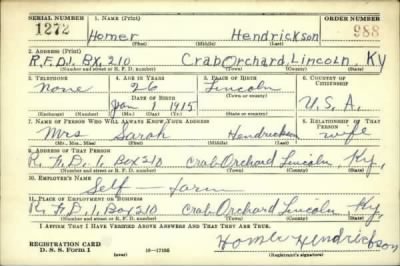 SERIAL NUMBER 1. NAME (Print) ORDER NUMBER
1272 Homer Hendrickson 988
(First) (Middle) (Last)
2. ADDRESS (Print)
R.F.D.1. BX, 210 Crab Orchard, Lincoln Ky
(Number and street or R. F. D. number) (Town) (County) (State)
3. TELEPHONE 4. AGE IN YEARS 5. PLACE OF BIRTH 6. COUNTRY OF CITIZENSHIP
none 26 Lincoln
DATE OF BIRTH (Town or county)
Jan 1 1915 Ky U.S.A.
(Exchange) (Number) (Mo.) (Day) (Yr.) (State or country)
7. NAME OF PERSON WHO WILL ALWAYS KNOW YOUR ADDRESS 8. RELATIONSHIP OF THAT PERSON
Mrs Sarah Hendrickson wife
(Mr., Mrs., Miss) (First) (Middle) (Last)
9. ADDRESS OF THAT PERSON
R.F.D. 1, Box 210 Crab Orchard Lincoln, Ky.
(Number and street or R. F. D. number) (Town) (County) (State)
10. EMPLOYER'S NAME
Self — farm
11. PLACE OF EMPLOYMENT OR BUSINESS
R.F.D. 1, Box 210 Crab Orchard Lincoln, Ky.
(Number and street or R. F. D. number) (Town) (County) (State)
I AFFIRM THAT I HAVE VERIFIED ABOVE ANSWERS AND THAT THEY ARE TRUE.
REGISTRATION CARD
D. S. S. Form 1 16—17105 Homer Hendrickson
(Registrant's signature)